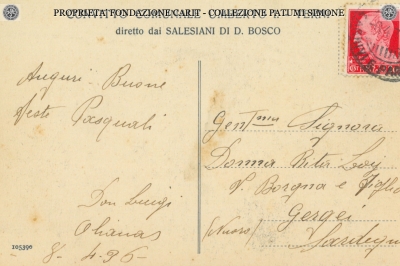 PROPRIETA' FONDAZIONE CARIT - COLLEZIONE PATUMI SIMONE
CONVITTO COMUNALE UMBERTO I - TERNI
diretto dai SALESIANI DI D. BOSCO
Auguri Buone
Feste Pasquali
Don Luigi
8-4-96-
105390
Gent.ma Signora
Donna Rita Loy
e Figlio
Gergei
(Nuoro) Sardegna